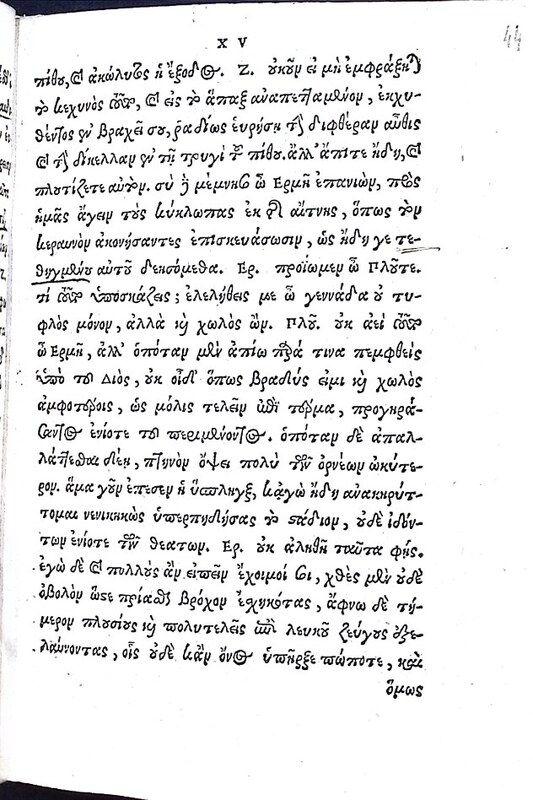 XV
44
πίθου, καὶ ἀκώλυτος ἡ ἔξοδος. Ζ. οὐκοῦν εἰ μὴ ἐμφράξηται
τὸ κεχηνὸς τοῦτο, καὶ εἰς τὸ ἅπαξ ἀναπεπταμένον, ἐκχυ-
θέντος ἐν βραχεῖ σου, ῥαδίως εὑρήσει τὴν διφθέραν αὖθις
καὶ τὴν δίκελλαν ἐν τῇ τρυγὶ τοῦ πίθου. ἀλλ' ἄπιτε ἤδη, καὶ
πλουτίζετε αὐτόν. σὺ δὲ μέμνησο ὦ Ἑρμῆ ἐπανιὼν, πρὸς
ἡμᾶς ἄγειν τοὺς κύκλωπας ἐκ τῆς αἴτνης, ὅπως τὸν
κεραυνὸν ἀκονήσαντες ἐπισκευάσωσιν, ὡς ἤδη γε τε-
θηγμένου αὐτοῦ δεησόμεθα. Ερ. προΐωμεν ὦ Πλοῦτε.
τί τοῦτο ὑποσκάζεις; ἐλελήθεις με ὦ γεννάδα οὐ τυ-
φλὸς μόνον, ἀλλὰ καὶ χωλὸς ὤν. Πλοῦ. οὐκ ἀεὶ τοῦτο
ὦ Ἑρμῆ, ἀλλ' ὁπόταν μὲν ἀπίω παρά τινα πεμφθεὶς
ὑπὸ τοῦ Διὸς, οὐκ οἶδ' ὅπως βραδύς εἰμι καὶ χωλὸς
ἀμφοτέροις, ὡς μόλις τελεῖν ἐπὶ τὸ τέρμα, προγηρά-
σαντος ἐνίοτε τοῦ περιμένοντος. ὁπόταν δὲ ἀπαλ-
λάττεσθαι δέῃ, πτηνὸν ὄψει πολὺ τῶν ὀρνέων ὠκύτε-
ρον. ἅμα γοῦν ἔπεσεν ἡ ὕσπληγξ, κἀγὼ ἤδη ἀνακηρύτ-
τομαι νενικηκὼς ὑπερπηδήσας τὸ στάδιον, οὐδὲ ἰδόν-
των ἐνίοτε τῶν θεατων. Ερ. οὐκ ἀληθῆ ταῦτα φῄς.
ἐγὼ δὲ καὶ πολλοὺς ἂν εἰπεῖν ἔχοιμί σοι, χθὲς μὲν οὐδὲ
ὀβολὸν ὥστε πρίασθαι βρόχον ἐσχηκότας, ἄφνω δὲ τή-
μερον πλουσίους καὶ πολυτελεῖς ἐπὶ λευκοῦ ζεύγους ἐξε-
λαύνοντας, οἷς οὐδὲ κἂν ὄνος ὑπῆρξε πώποτε, καὶ
ὅμως